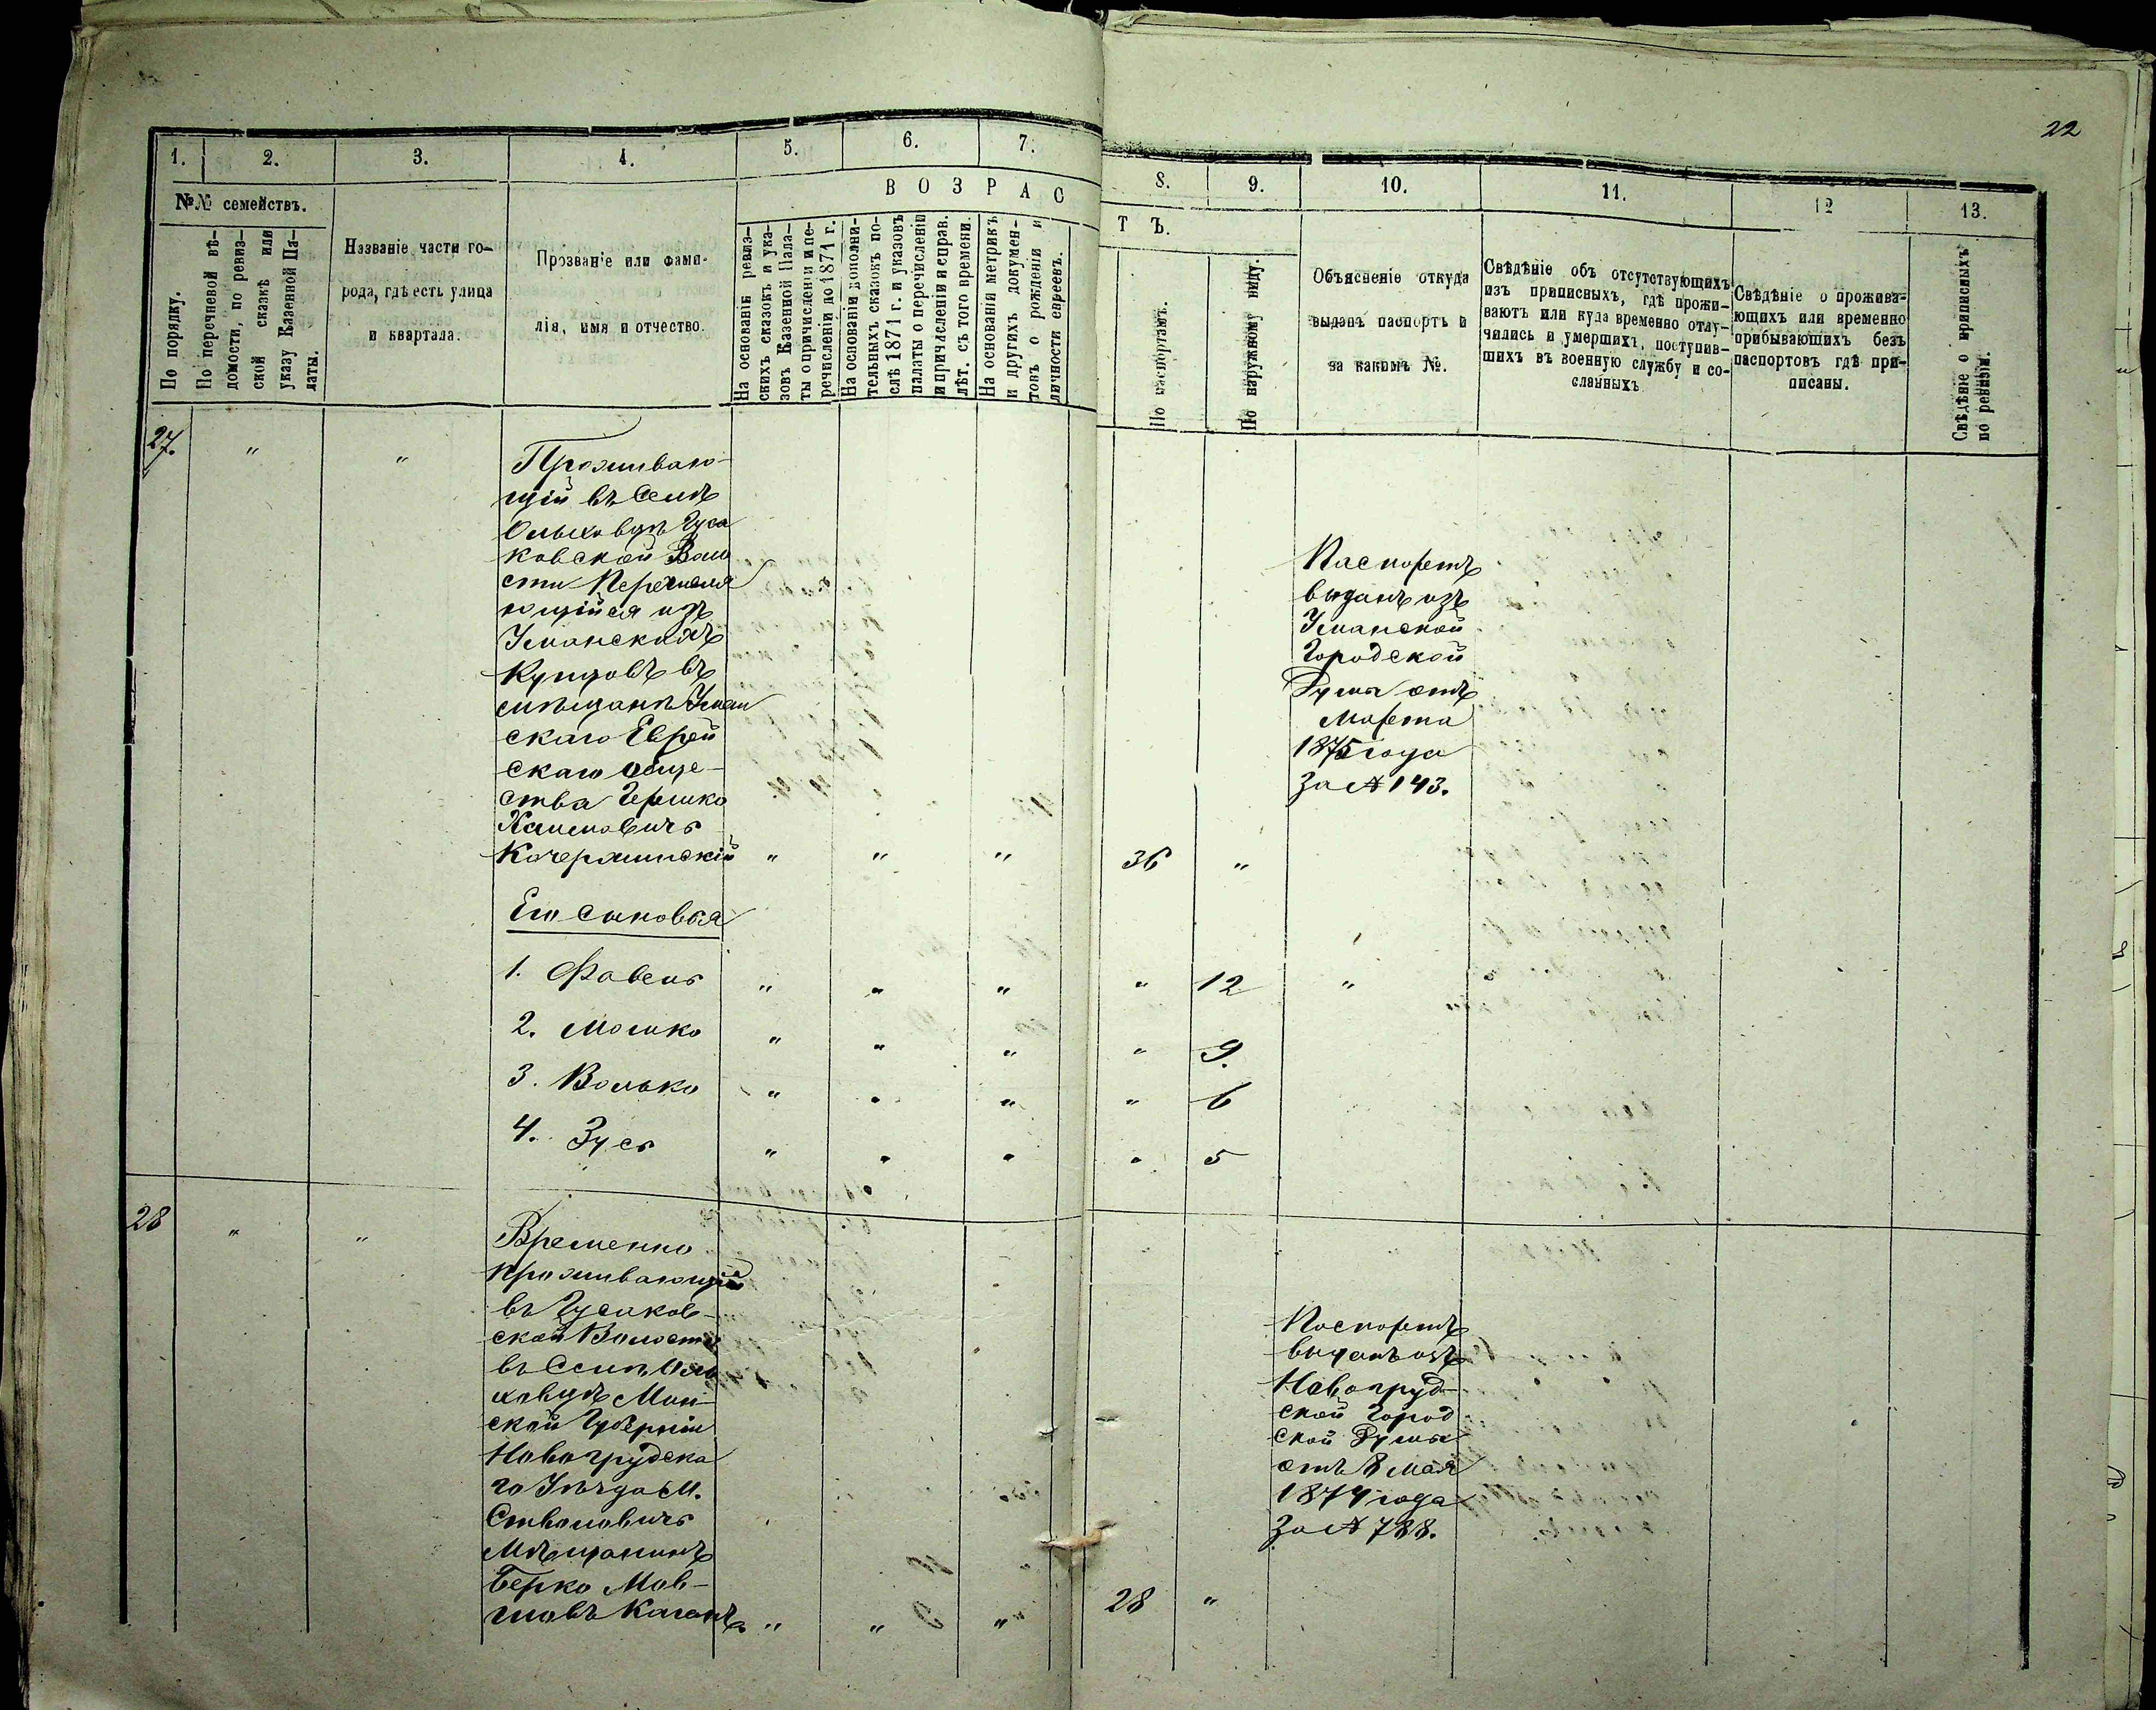 22
1. 2. 3. 4. 5. 6. 7. 8. 9. 10. 11. 12 13.
№№ семействъ.
По порядку.
По перечневой вѣ-
домости, по ревиз-
ской сказкѣ или
указу Казенной Па-
латы.
Названіе части го-
рода, гдѣ есть улица
и квартала.
Прозваніе или фами-
лія, имя и отчество.
ВОЗРАС
ТЪ.
На основаніи ревиз-
скихъ сказокъ и ука-
зовъ Казенной Пала-
ты о причисленіи и пе-
речисленіи до 1871 г.
На основаніи дополни-
тельныхъ сказокъ по-
слѣ 1871 г. и указовъ
палаты о перечисленіи
и причисленіи и справ.
лѣт. съ того времени.
На основаніи метрикъ
и другихъ докумен-
товъ о рожденіи и
личности евреевъ.
По паспортамъ.
По наружному виду.
Объясненіе откуда
выданъ паспортъ и
за какимъ №.
Свѣдѣніе объ отсутствующихъ
изъ приписныхъ, гдѣ прожи-
ваютъ или куда временно отлу-
чились и умершихъ, поступив-
шихъ въ военную службу и со-
сланныхъ
Свѣдѣніе о прожива-
ющихъ или временно
прибывающихъ безъ
паспортовъ гдѣ при-
писаны.
Свѣдѣніе о приписныхъ
по ревизіи.
27. " "
Проживаю-
щій въ Селѣ
Ольховцѣ Гуса
ковской Воло
сти Перечисля
ющійся изъ
Уманскихъ
Купцовъ въ
мѣщанъ Уман
скаго Еврей
скаго Обще-
ства Гершко
Хаимовичъ
Кочержинскій " " " 36 "
Паспортъ
выданъ изъ
Уманской
Городской
Думы отъ
Марта
1875 года
За № 143.
Его сыновья
1. Фавель " " " " 12 "
2. Мошко " " " " 9.
3. Волько " " " " 6
4. Зусь " " " " 5
28 " "
Временно
проживающій
въ Гусаков-
ской Волости
въ Селѣ Оль
ховцѣ Мин-
ской Губерніи
Новогрудска
го Уѣзда М.
Стволовичъ
Мѣщанинъ
Берко Мов-
шовъ Каганъ " " " 28 "
Паспортъ
выданъ изъ
Новогруд-
ской Город
ской Думы
отъ 8 Мая
1874 года
За № 788.